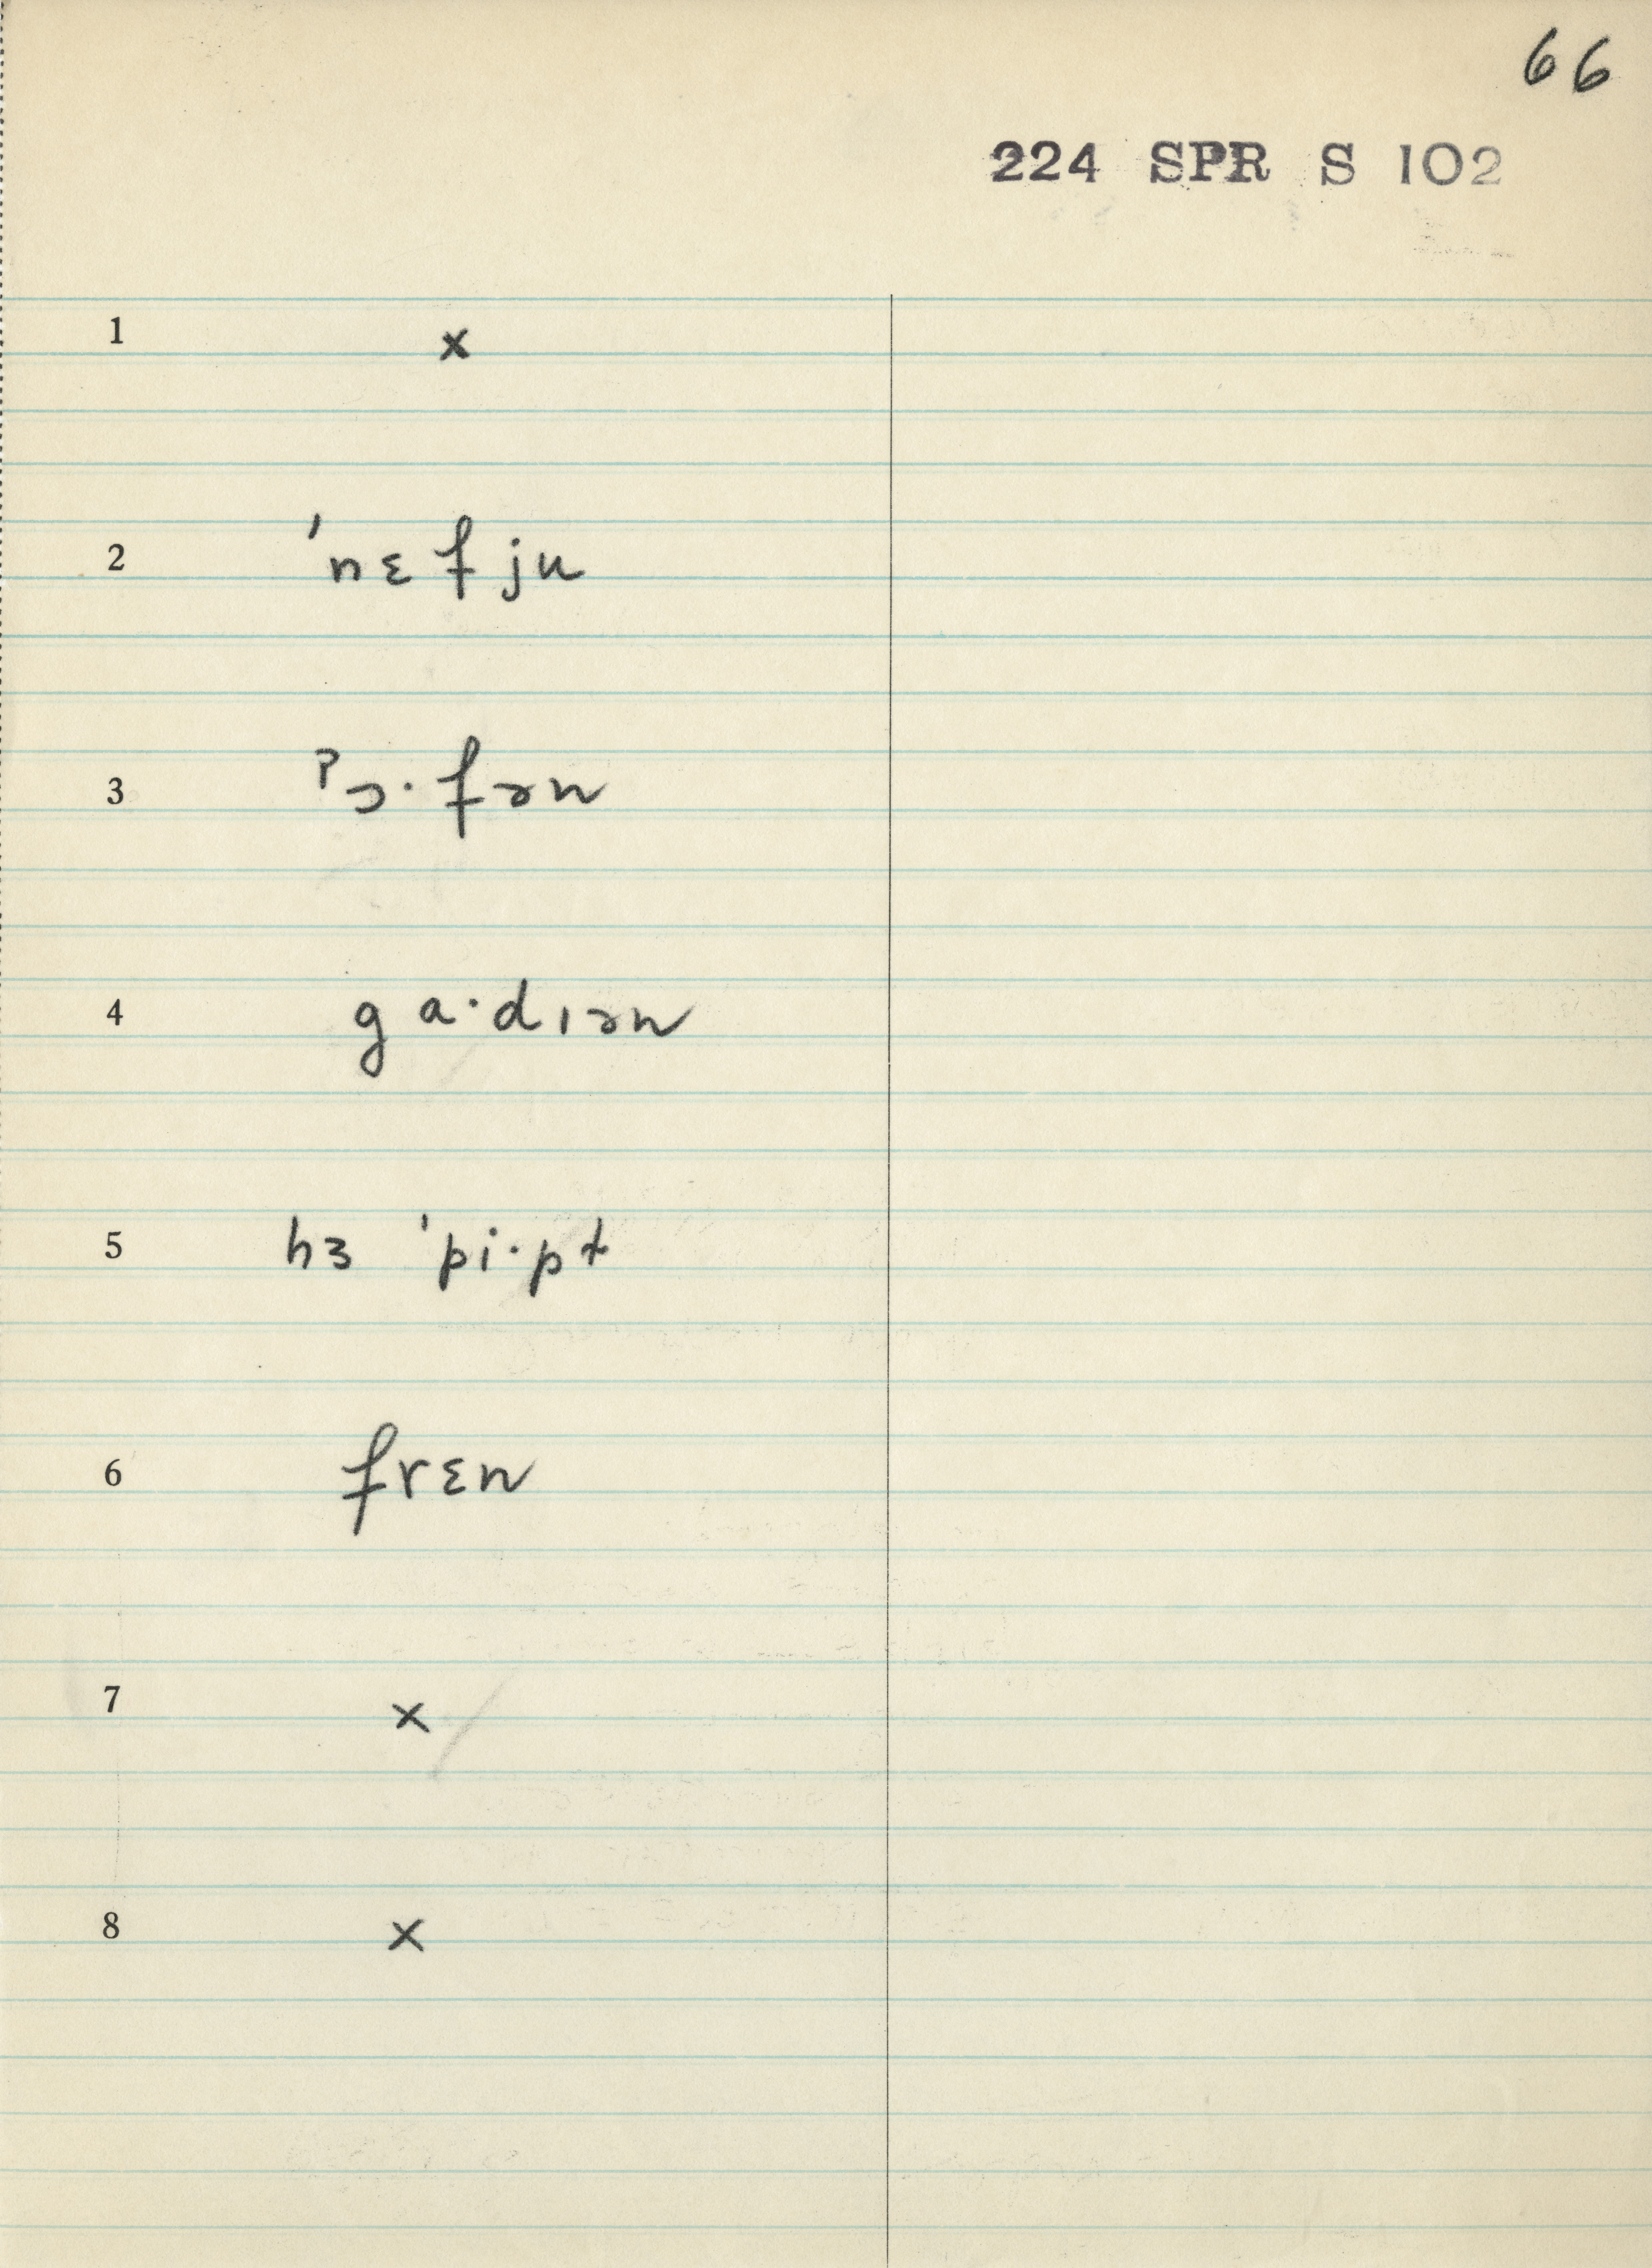 66
224 SPR S 102
1 x
2 ˈnɛfju
3 ˀɔ·fən
4 ga·dıən
5 hɜ ˈpi·pt
6 frɛn
7 x
8 x